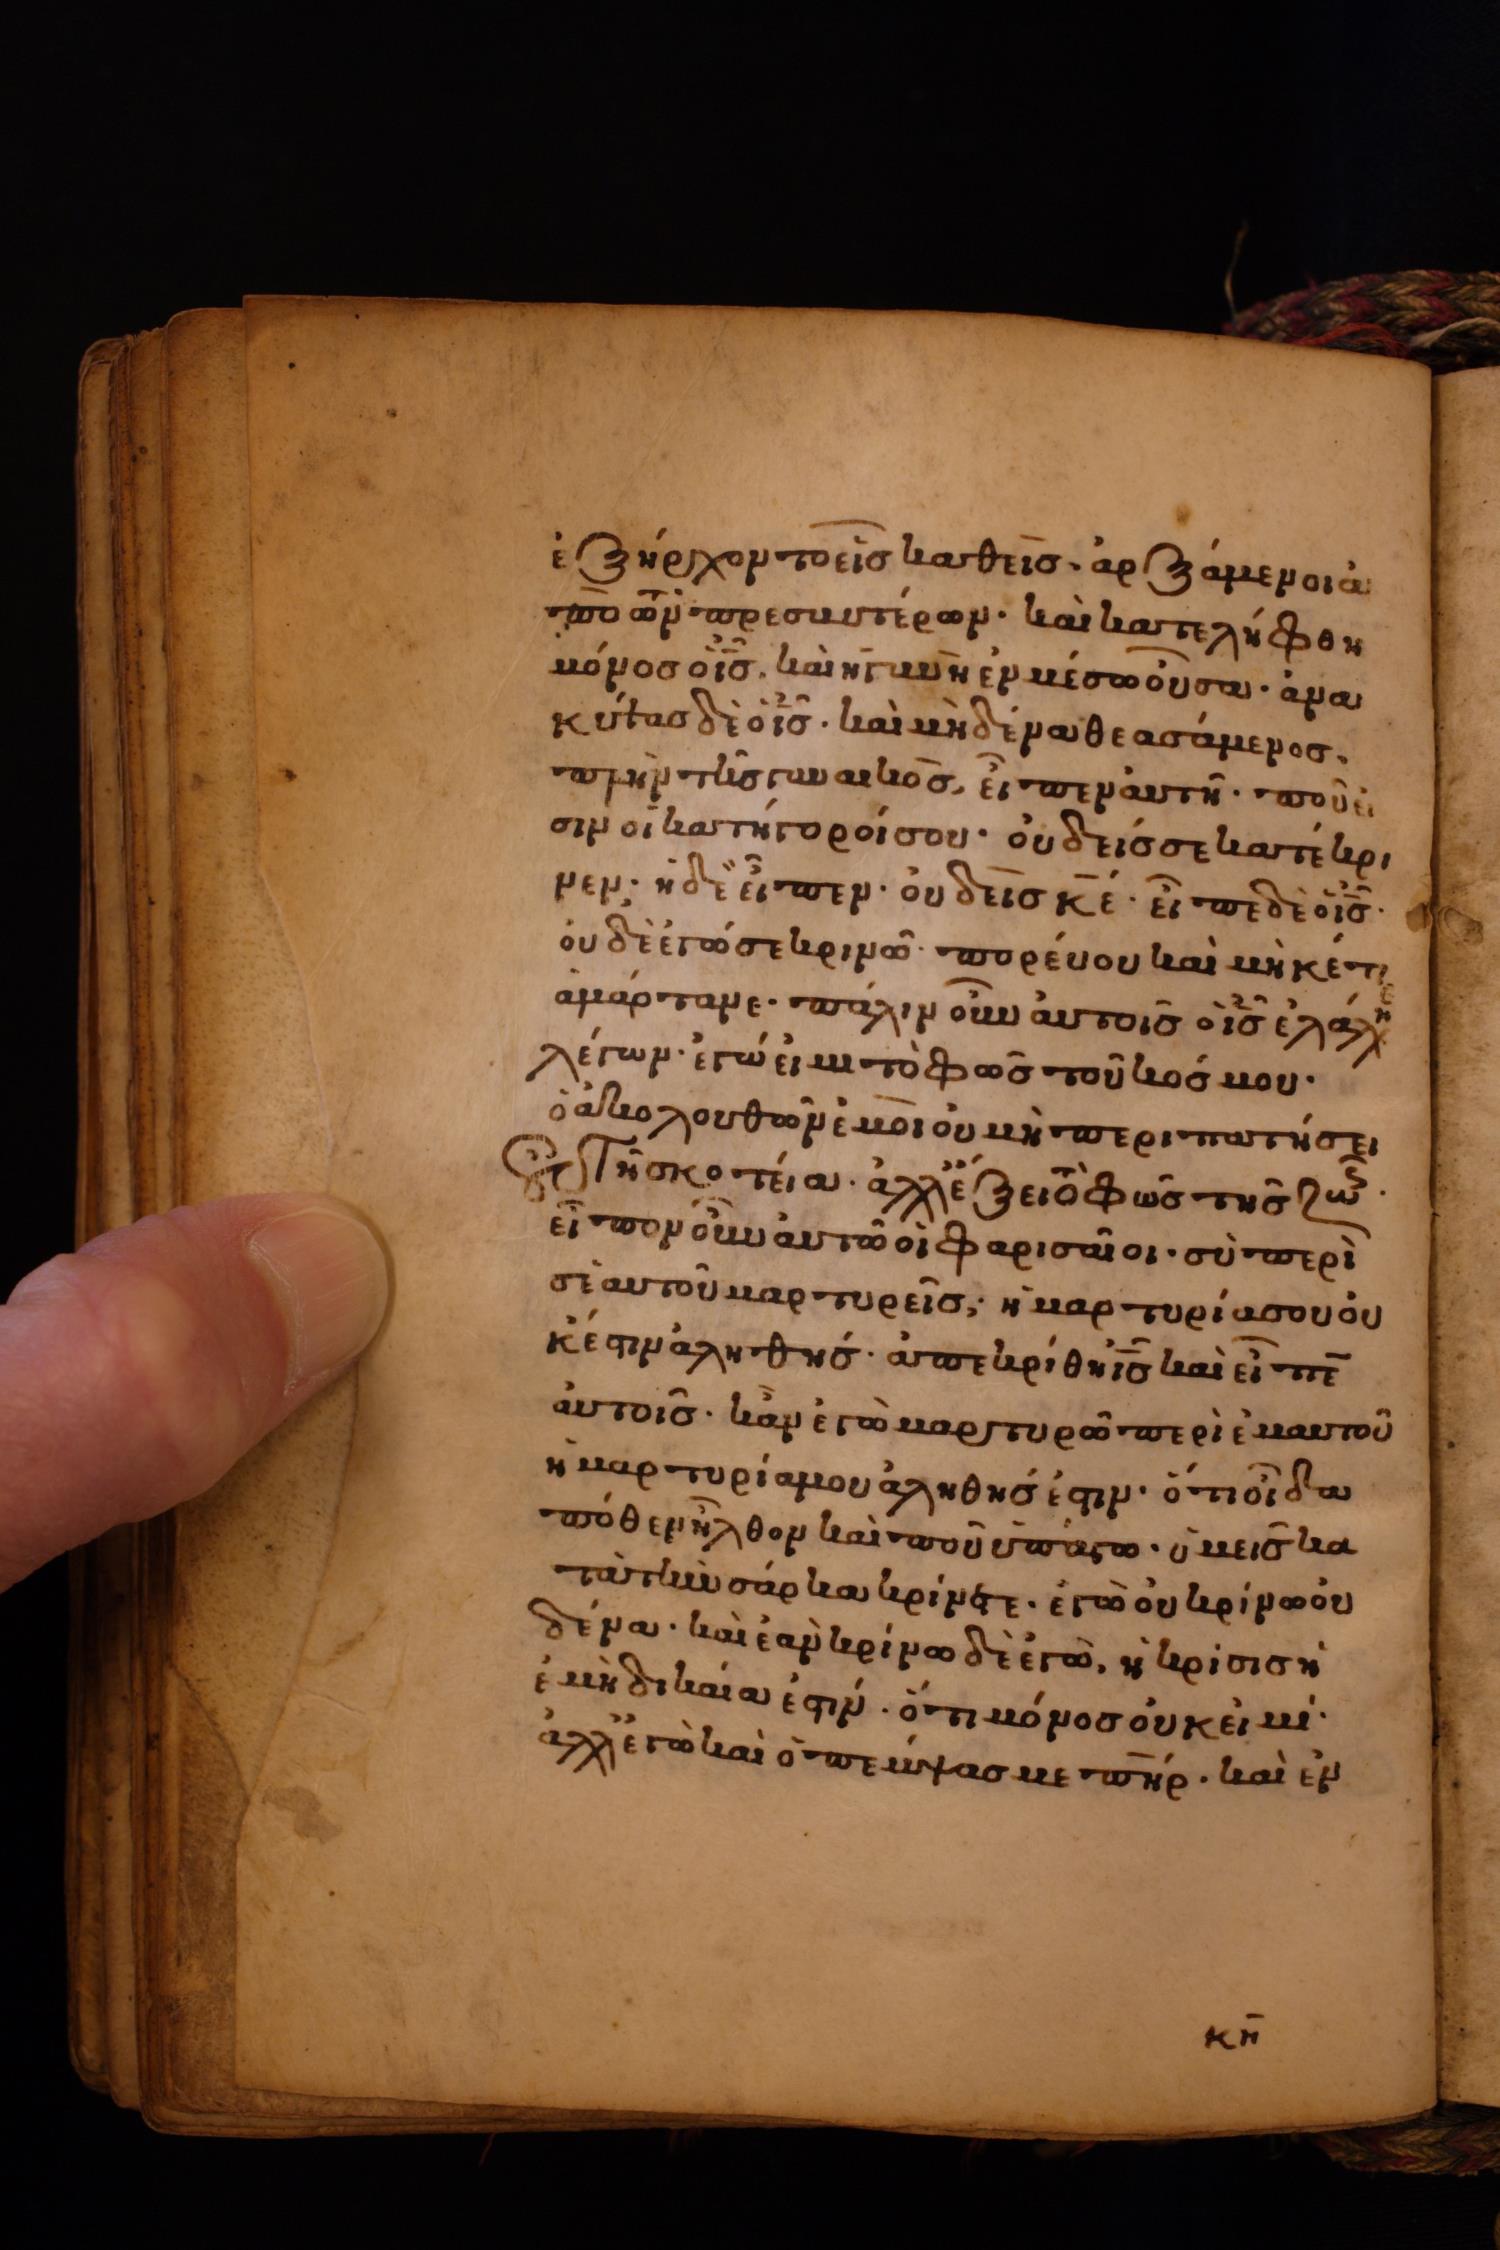 ἐξήρχοντο εἷς καθεῖς· ἀρξάμενοι ἀ
πὸ τῶν πρεσβυτέρων· καὶ κατελήφθη
μόνος ὁ ις̅· καὶ ἡ γυνὴ ἐν μέσω οὖσα· ἀνα
κύψας δὲ ὁ ις̅· καὶ μηδένα θεασάμενος,
πλὴν τῆς γυναικὸς, εἶπεν αὐτῆ· ποῦ εἰ
σιν οἱ κατήγοροί σου· οὐδείς σε κατέκρι
νεν; ἡ δὲ εἶπεν· οὐδεὶς κ̅ε̅· εἶπε δὲ ὁ ις̅·
οὐδὲ ἐγώ σε κρινῶ· πορεύου καὶ μηκέτι
ἁμάρτανε· πάλιν οὖν αὐτοῖς ὁ ις̅ ἐλάλησε
λέγων· ἐγώ εἰμι τὸ φῶς τοῦ κόσμου·
ὁ ἀκολουθῶν ἐμοὶ οὐ μὴ περιπατήσει
ἐν τῆ σκοτεία· ἀλλ' ἕξει τὸ φῶς τῆς ζωῆς·
εἶπον οὖν αὐτῶ οἱ φαρισαῖοι· σὺ περὶ
σεαυτοῦ μαρτυρεῖς; ἡ μαρτυρία σου οὐ
κ ἔστιν ἀληθής· ἀπεκρίθη ις̅ καὶ εἶπε̅
αὐτοῖς· κἂν ἐγὼ μαρτυρῶ περὶ ἐμαυτοῦ
ἡ μαρτυρία μου ἀληθής ἐστιν· ὅτι οἶδα
πόθεν ἦλθον καὶ ποῦ ὑπάγω· ὑμεῖς κα
τὰ τὴν σάρκα κρίνετε· ἐγὼ οὐ κρίνω οὐ
δένα· καὶ ἐὰν κρίνω δὲ ἐγὼ, ἡ κρίσις ἡ
ἐμὴ δικαία ἐστίν· ὅτι μόνος οὐκ εἰμί·
ἀλλ' ἐγὼ καὶ ὁ πέμψας με π̅η̅ρ· καὶ ἐν
κη̅